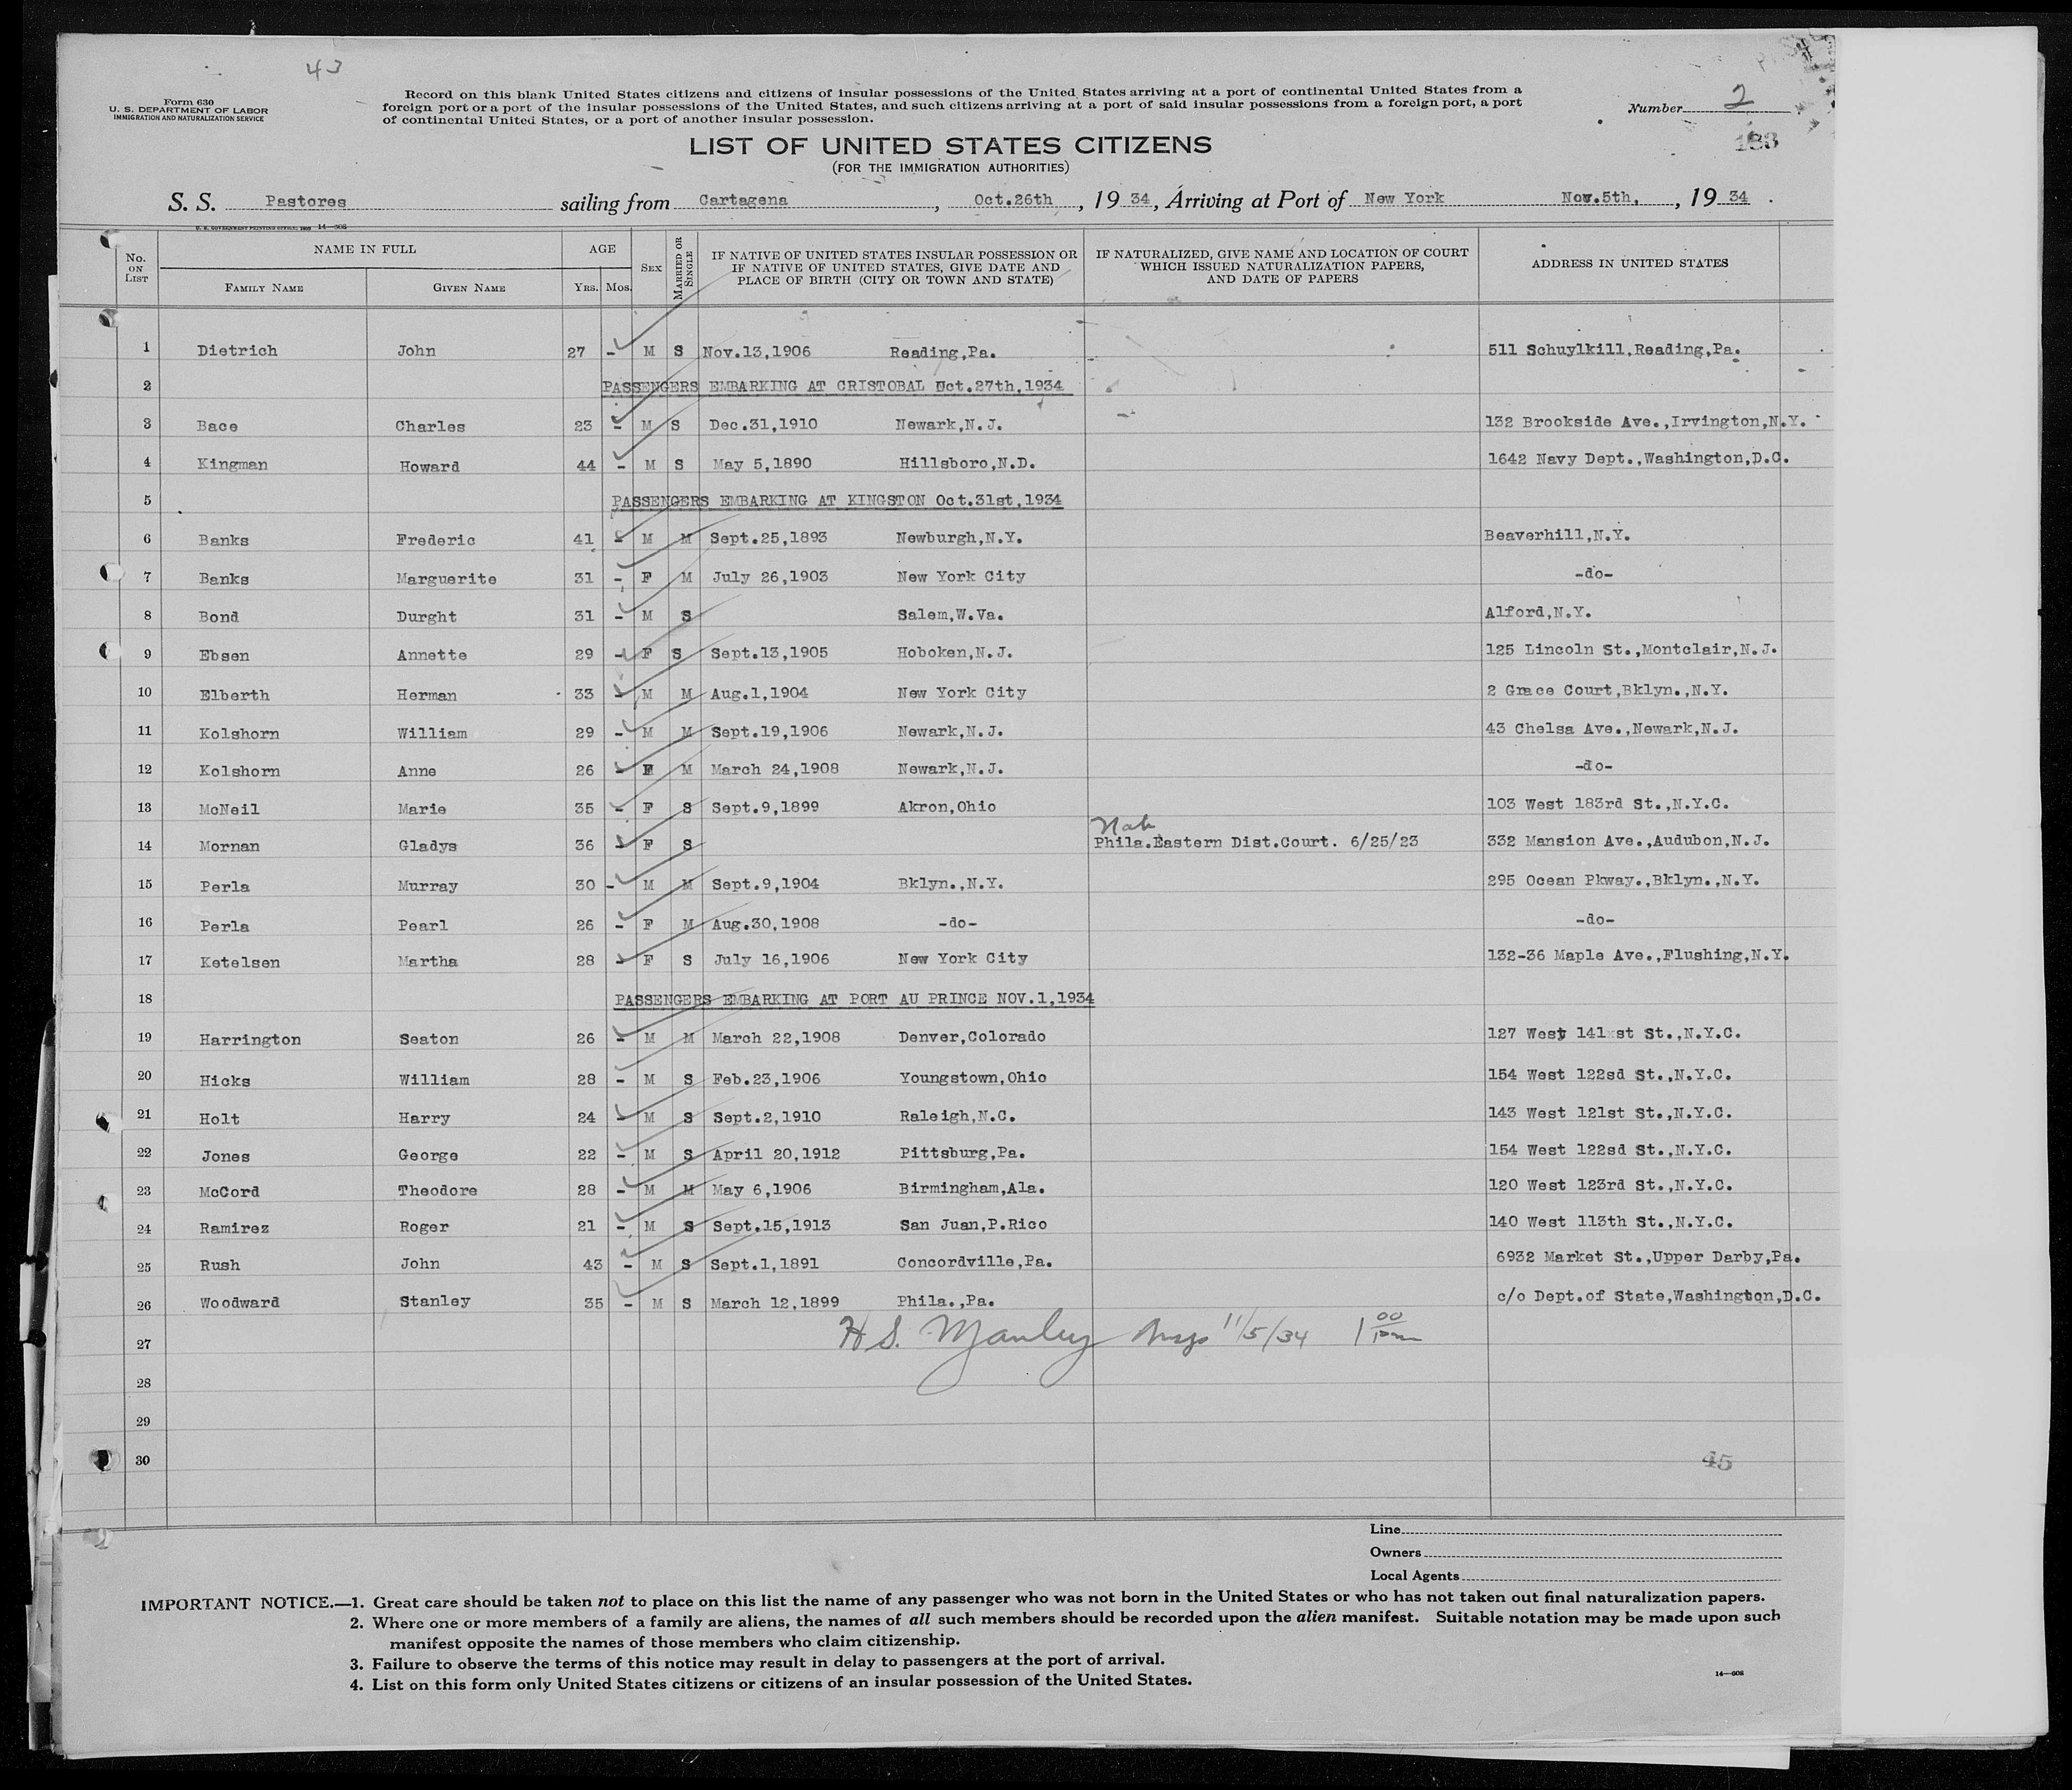 43
Form 630
U. S. DEPARTMENT OF LABOR
IMMIGRATION AND NATURALIZATION SERVICE
Record on this blank United States citizens and citizens of insular possessions of the United States arriving at a port of continental United States from a
foreign port or a port of the insular possessions of the United States, and such citizens arriving at a port of said insular possessions from a foreign port, a port
of continental United States, or a port of another insular possession.
Number 2
183
LIST OF UNITED STATES CITIZENS
(FOR THE IMMIGRATION AUTHORITIES)
S. S. Pastores sailing from Cartagena, Oct.26th, 1934, Arriving at Port of New York Nov.5th, , 1934 .
No. ON LIST NAME IN FULL FAMILY NAME GIVEN NAME AGE YRS. MOS. SEX MARRIED OR SINGLE IF NATIVE OF UNITED STATES INSULAR POSSESSION OR IF NATIVE OF UNITED STATES, GIVE DATE AND PLACE OF BIRTH (CITY OR TOWN AND STATE) IF NATURALIZED, GIVE NAME AND LOCATION OF COURT WHICH ISSUED NATURALIZATION PAPERS, AND DATE OF PAPERS ADDRESS IN UNITED STATES
1 Dietrich John 27 - M S Nov.13,1906 Reading,Pa. 511 Schuylkill,Reading,Pa.
2 PASSENGERS EMBARKING AT CRISTOBAL Oct.27th,1934
3 Bace Charles 23 - M S Dec.31,1910 Newark,N.J. 132 Brookside Ave.,Irvington,N.Y.
4 Kingman Howard 44 - M S May 5,1890 Hillsboro,N.D. 1642 Navy Dept.,Washington,D.C.
5 PASSENGERS EMBARKING AT KINGSTON Oct.31st,1934
6 Banks Frederic 41 - M M Sept.25,1893 Newburgh,N.Y. Beaverhill,N.Y.
7 Banks Marguerite 31 - F M July 26,1903 New York City -do-
8 Bond Durght 31 - M S Salem,W.Va. Alford,N.Y.
9 Ebsen Annette 29 - F S Sept.13,1905 Hoboken,N.J. 125 Lincoln St.,Montclair,N.J.
10 Elberth Herman 33 - M M Aug.1,1904 New York City 2 Grace Court,Bklyn.,N.Y.
11 Kolshorn William 29 - M M Sept.19,1906 Newark,N.J. 43 Chelsa Ave.,Newark,N.J.
12 Kolshorn Anne 26 - F M March 24,1908 Newark,N.J. -do-
13 McNeil Marie 35 - F S Sept.9,1899 Akron,Ohio 103 West 183rd St.,N.Y.C.
14 Mornan Gladys 36 - F S Phila.Eastern Dist.Court. 6/25/23 332 Mansion Ave.,Audubon,N.J.
15 Perla Murray 30 - M M Sept.9,1904 Bklyn.,N.Y. 295 Ocean Pkway.,Bklyn.,N.Y.
16 Perla Pearl 26 - F M Aug.30,1908 -do- -do-
17 Ketelsen Martha 28 - F S July 16,1906 New York City 132-36 Maple Ave.,Flushing,N.Y.
18 PASSENGERS EMBARKING AT PORT AU PRINCE NOV.1,1934
19 Harrington Seaton 26 - M M March 22,1908 Denver,Colorado 127 West 141 st St.,N.Y.C.
20 Hicks William 28 - M S Feb.23,1906 Youngstown,Ohio 154 West 122sd St.,N.Y.C.
21 Holt Harry 24 - M S Sept.2,1910 Raleigh,N.C. 143 West 121st St.,N.Y.C.
22 Jones George 22 - M S April 20,1912 Pittsburg,Pa. 154 West 122sd St.,N.Y.C.
23 McCord Theodore 28 - M M May 6,1906 Birmingham,Ala. 120 West 123rd St.,N.Y.C.
24 Ramirez Roger 21 - M S Sept.15,1913 San Juan,P.Rico 140 West 113th St.,N.Y.C.
25 Rush John 43 - M S Sept.1,1891 Concordville,Pa. 6932 Market St.,Upper Darby,Pa.
26 Woodward Stanley 35 - M S March 12,1899 Phila.,Pa. c/o Dept.of State,Washington,D.C.
27 H.S. Manley 11/5/34 1 00 pm
28
29
30
45
Line
Owners
Local Agents
IMPORTANT NOTICE.—1. Great care should be taken not to place on this list the name of any passenger who was not born in the United States or who has not taken out final naturalization papers.
2. Where one or more members of a family are aliens, the names of all such members should be recorded upon the alien manifest. Suitable notation may be made upon such
manifest opposite the names of those members who claim citizenship.
3. Failure to observe the terms of this notice may result in delay to passengers at the port of arrival.
4. List on this form only United States citizens or citizens of an insular possession of the United States.
14—608